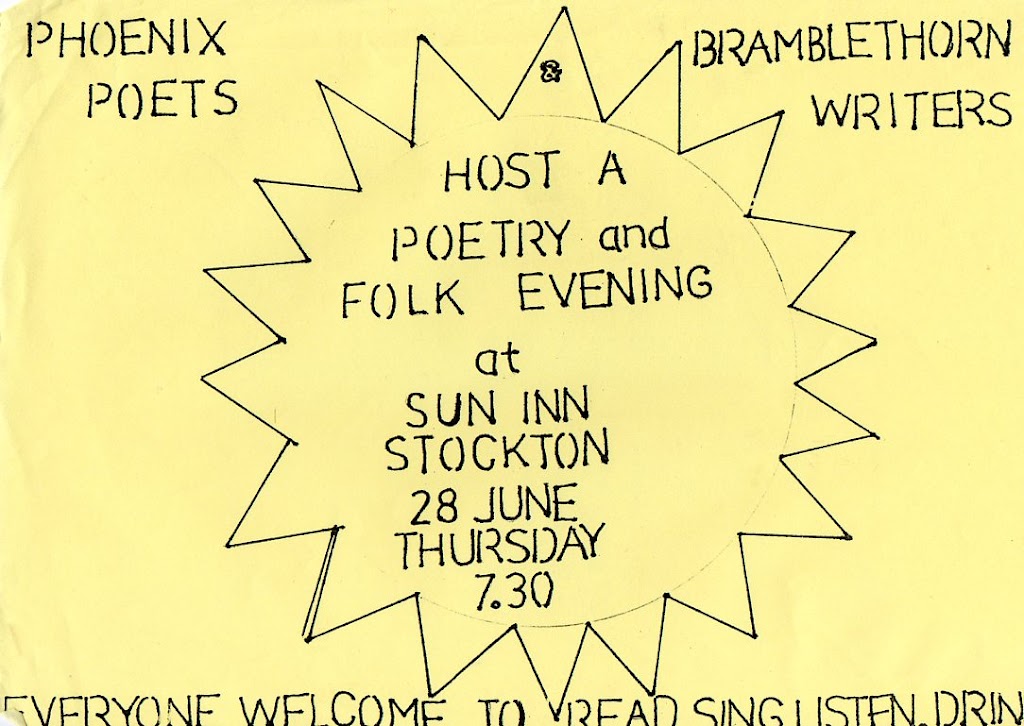 PHOENIX
POETS
&
BRAMBLETHORN
WRITERS
HOST A
POETRY and
FOLK EVENING
at
SUN INN
STOCKTON
28 JUNE
THURSDAY
7.30
EVERYONE WELCOME TO READ SING LISTEN. DRIN